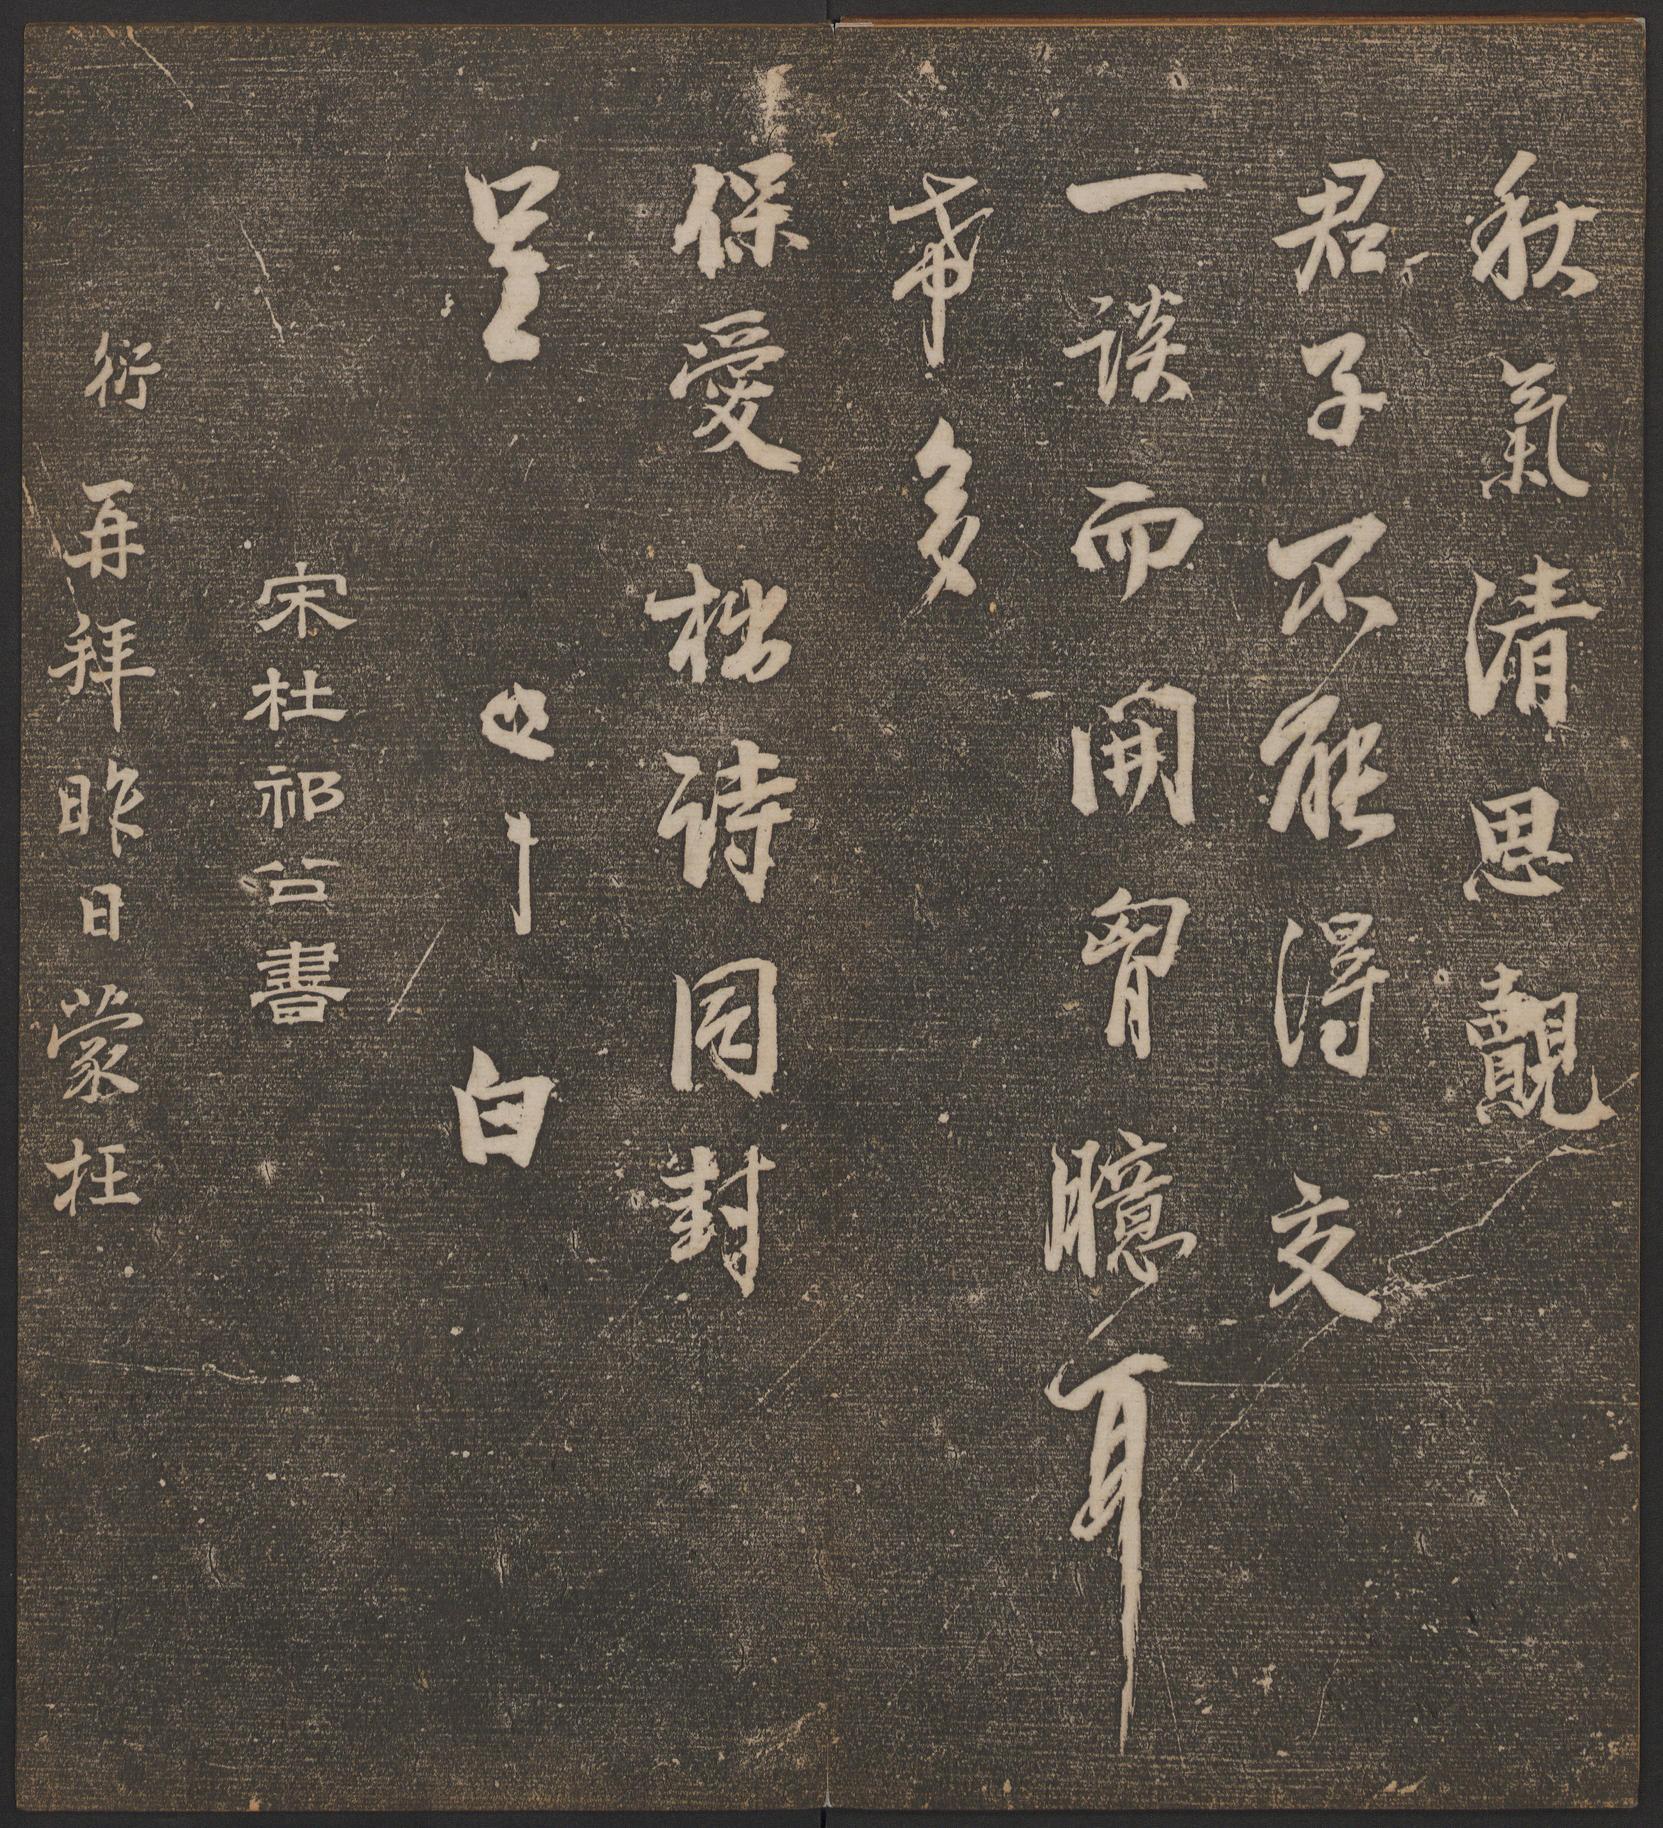 秋氣清思覿
君子不能得交
一談而開胷臆耳
希多
保愛拙詩同封
呈 白
宋杜祁公書
衍再拜昨日蒙枉